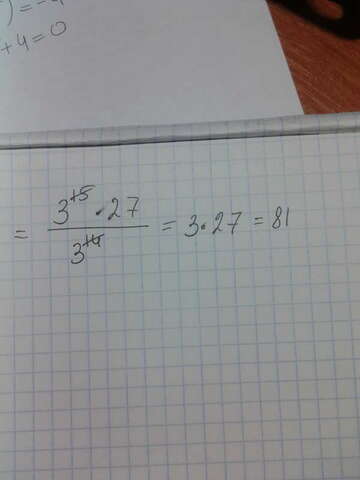 ) = -4
+ 4 = 0
= \frac{3^{15} \cdot 27}{3^{14}} = 3 \cdot 27 = 81